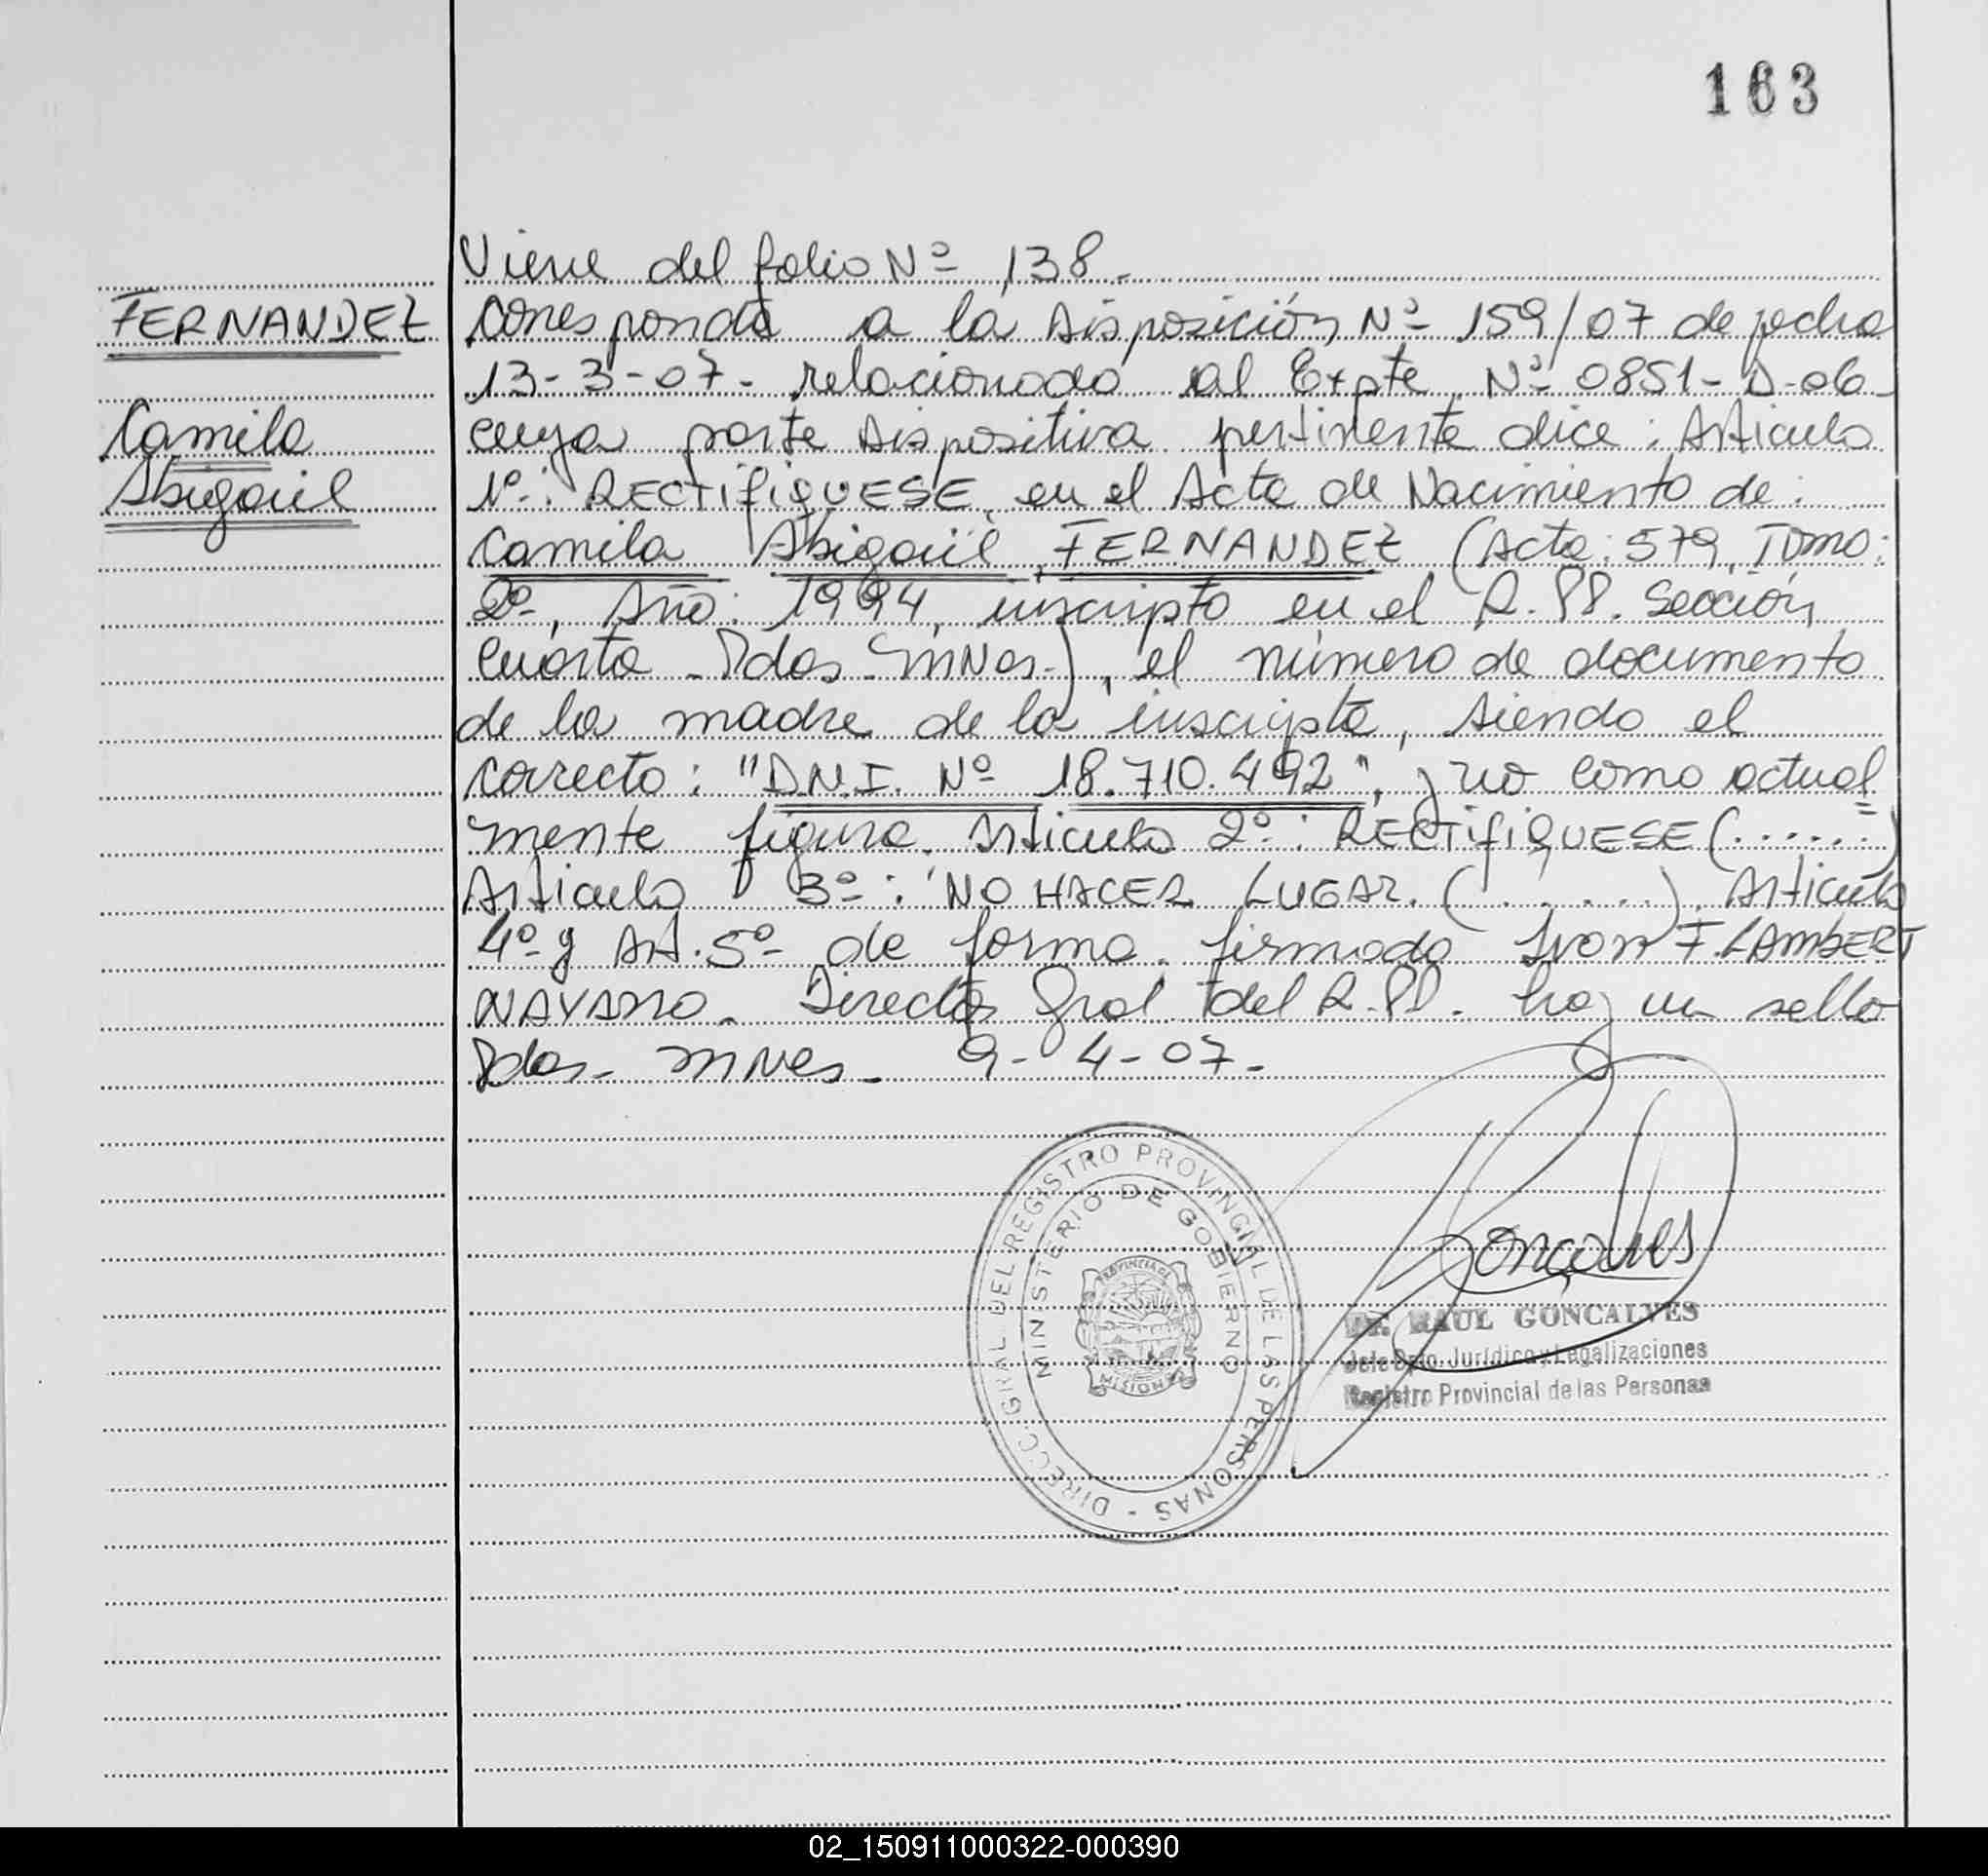 163
Viene del folio Nº 138.-
FERNANDEZ
Corresponde a la Disposición Nº 159/07 de fecha
13-3-07- relacionado al Expte Nº 0851-D-06-
Camila
cuya parte dispositiva pertinente dice: Articulo
Abigaíl
1º: RECTIFIQUESE, en el Acta de Nacimiento de:
Camila Abigaíl FERNANDEZ (Acta: 579, Tomo:
2º, Año: 1994, inscripto en el R.PP. Sección
Cuarta - Pdas - Mnes-), el número de documento
de la madre de la inscripta, siendo el
correcto: "D.N.I. Nº 18.710.492", y no como actual=
mente figura. Articulo 2º: RECTIFIQUESE (......)
Articulo 3º: NO HACER LUGAR. (......). Articulo
4º y Art. 5º de forma. firmado Ivonn F. LAMBERT
NAVARRO. Director Gral del R.PP. hay un sello
Pdas. Mnes. 9-4-07.-
DIRECC. GRAL DEL REGISTRO PROVINCIAL DE LAS PERSONAS -
MINISTERIO DE GOBIERNO
PROVINCIA DE
MISIONES
Goncalves
Dr. RAUL GONCALVES
Jefe Dpto. Jurídico y Legalizaciones
Registro Provincial de las Personas
02_150911000322-000390